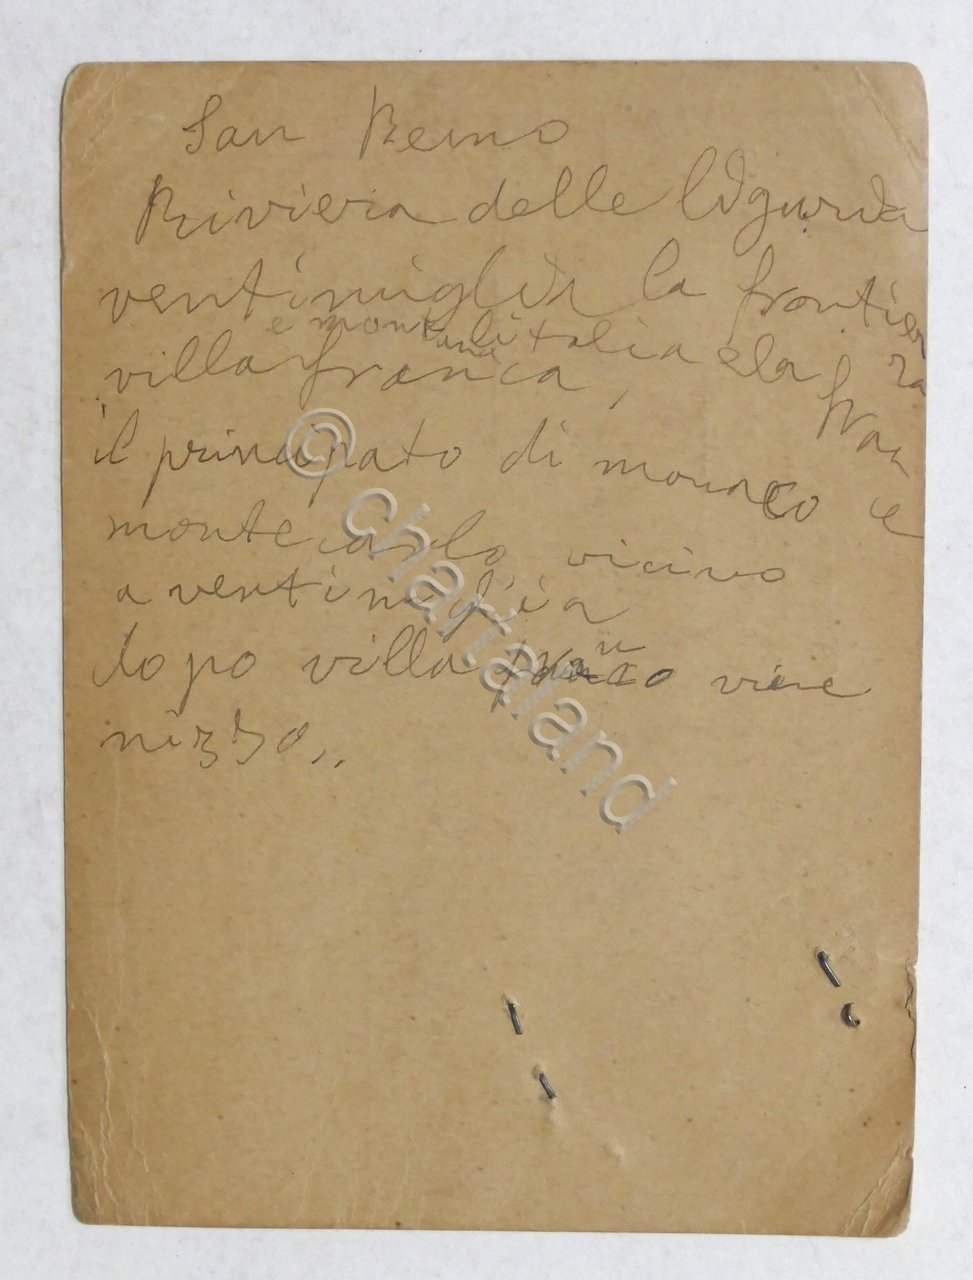 San Remo
Riviera delle liguria
ventimiglia la frontiera
e montana l'italia e la fran
villa franca,
il principato di monaco e
monte carlo vicino
a ventimiglia
dopo villa franco viene
nizza,,
© chartaland